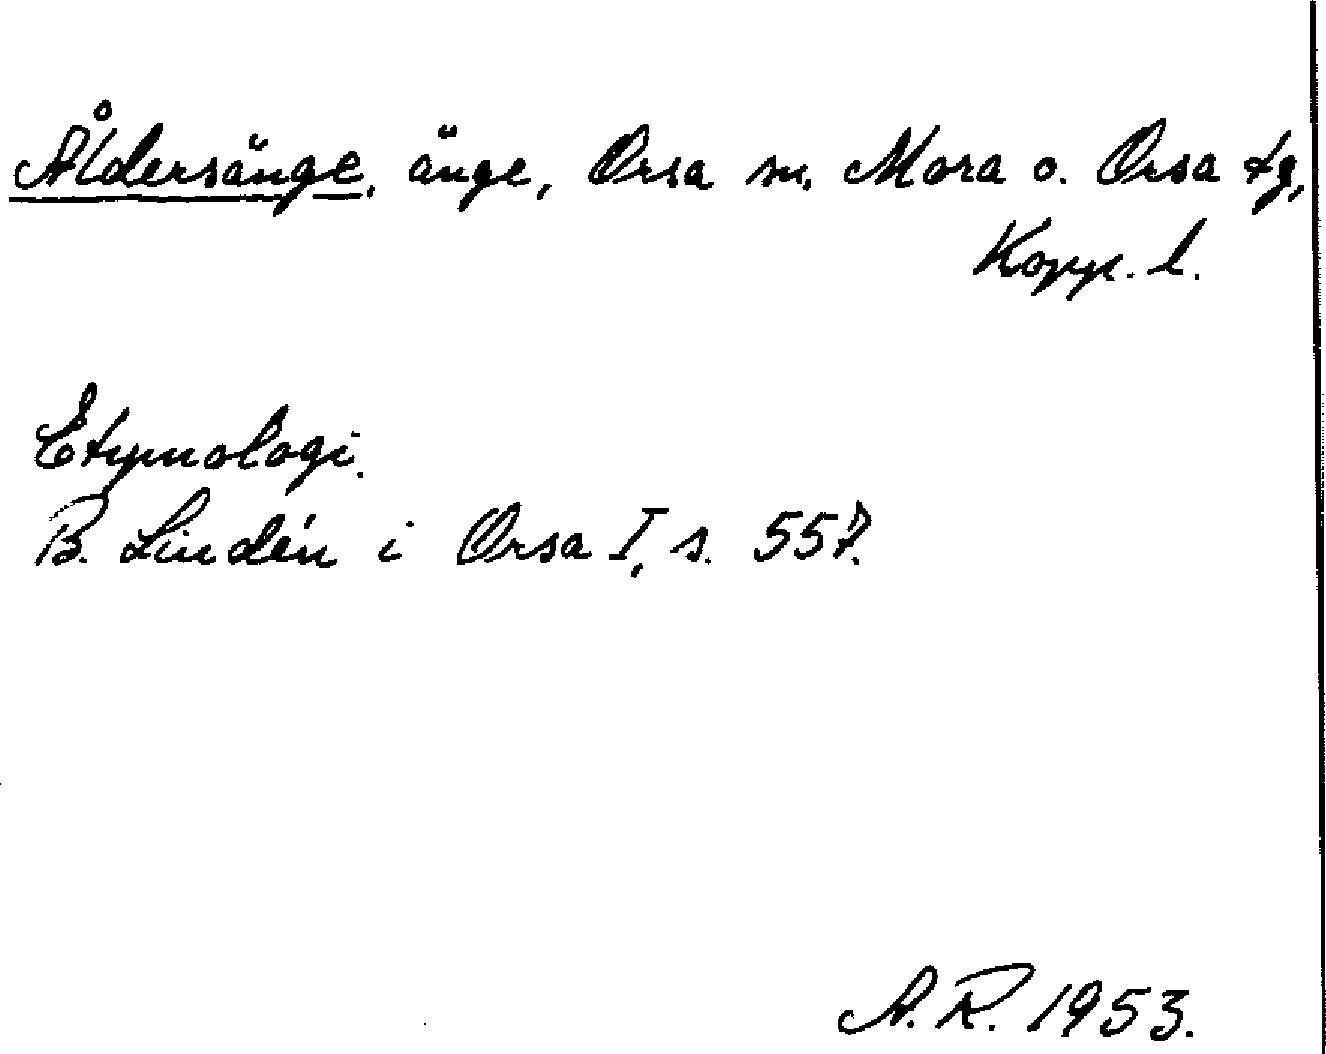 Åldersänge, änge, Orsa sn, Mora o. Orsa tg,
Kopp. l.
Etymologi.
B. Lindén i Orsa I, s. 557.
A.R. 1953.